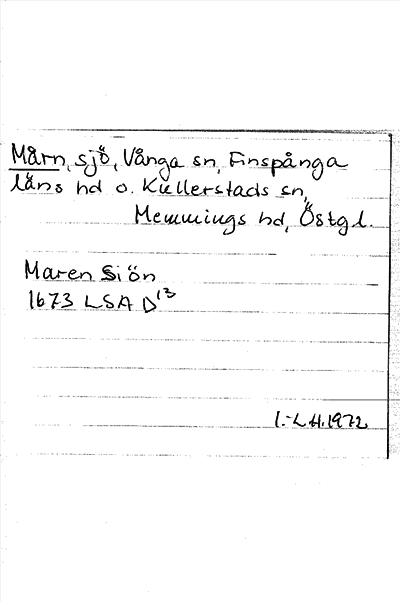 Mårn, sjö, Vånga sn, Finspånga
läns hd o. Kullerstads sn,
Memmings hd, Östgl.
Maren Siön
1673 LSA D13
I.-L H. 1972